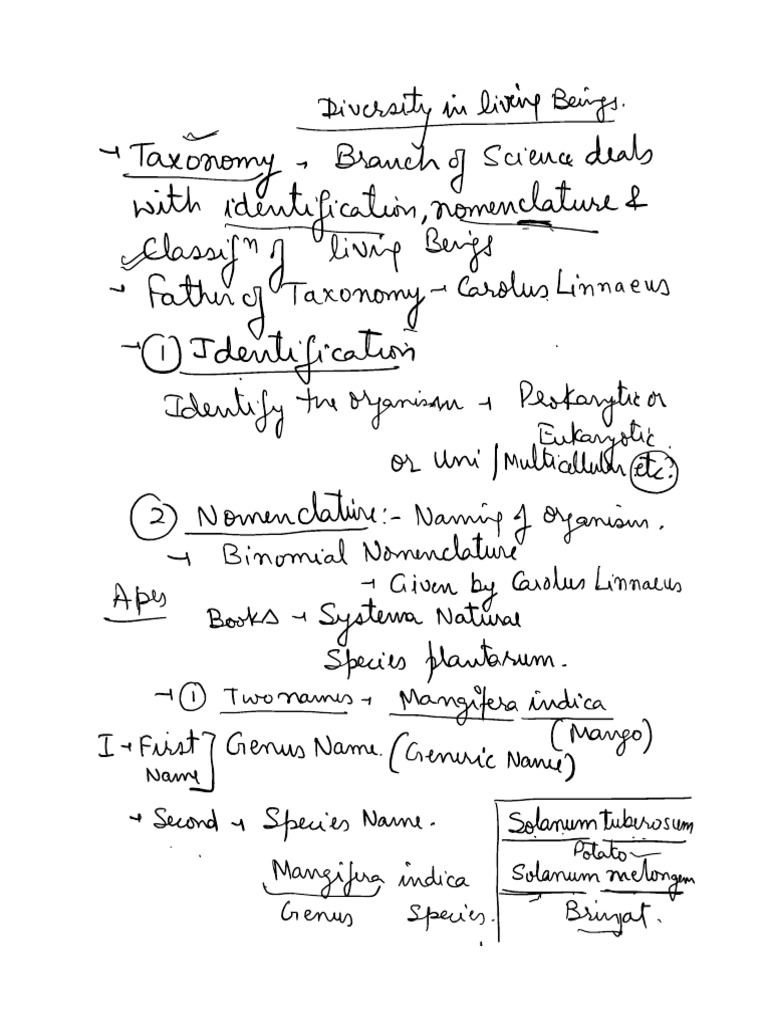 Diversity in living Beings.
→ Taxonomy → Branch of Science deals
with identification, nomenclature &
Classifⁿ of living Beings
→ Father of Taxonomy → Carolus Linnaeus
→ ① Identification
Identify the organism → Prokaryotic or
Eukaryotic
or Uni / Multicellular etc?
② Nomenclature:- Naming of organism.
→ Binomial Nomenclature
→ Given by Carolus Linnaeus
Apes
Books → Systema Naturae
Species plantarum.
→ ① Two names → Mangifera indica
(Mango)
I → First Name] Genus Name. (Generic Name)
→ Second → Species Name.
Mangifera indica
Genus Species.
Solanum tuberosum
Potato
Solanum melongem
Brinjal.